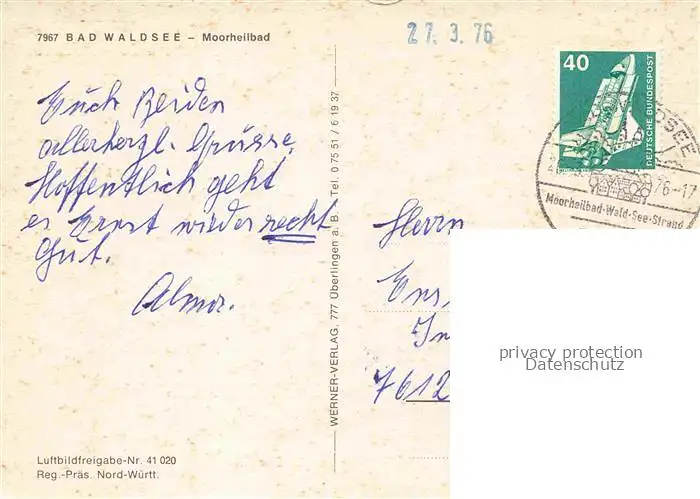 7967 BAD WALDSEE – Moorheilbad
27. 3. 76
Euch Beiden
allerherzl. Grüsse,
Hoffentlich geht
es Ernst wieder recht
Gut.
Alma.
WERNER-VERLAG, 777 Überlingen a. B. Tel. 0 75 51 / 6 19 37
40
DEUTSCHE BUNDESPOST
DSEE
76-17
Moorheilbad·Wald·See·Strand
Herrn
7612
privacy protection
Datenschutz
Luftbildfreigabe-Nr. 41 020
Reg.-Präs. Nord-Württ.